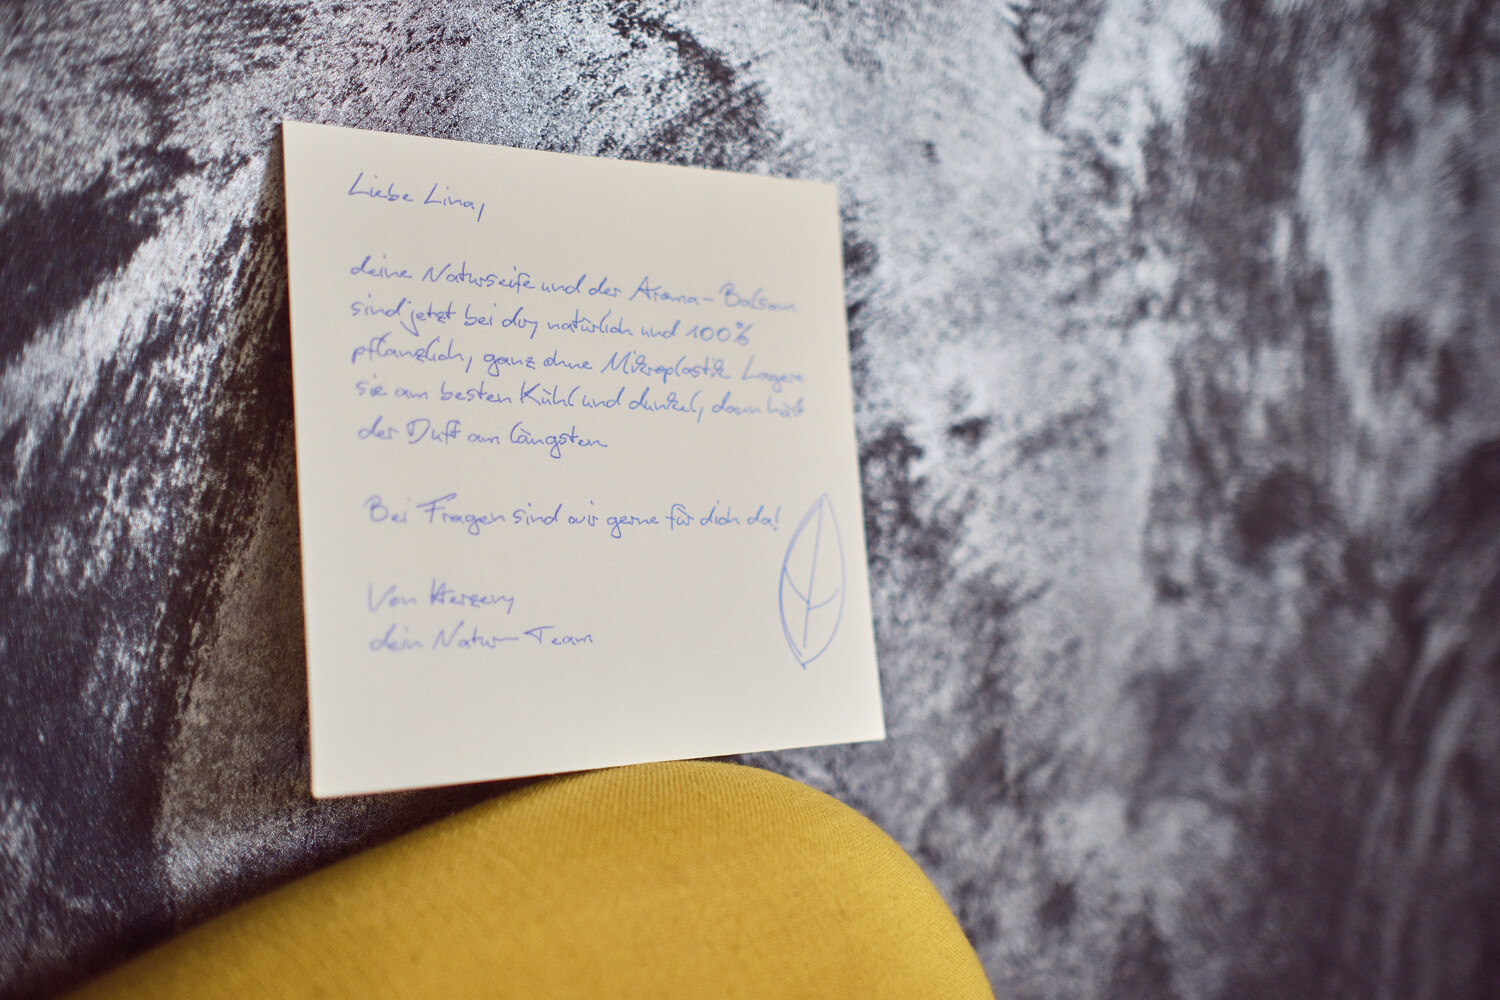 Liebe Lina,
deine Naturseife und der Aroma-Balsam
sind jetzt bei dir, natürlich und 100%
pflanzlich, ganz ohne Mikroplastik. Lagere
sie am besten kühl und dunkel, dann hält
der Duft am längsten.
Bei Fragen sind wir gerne für dich da!
Von Herzen,
dein Natur-Team